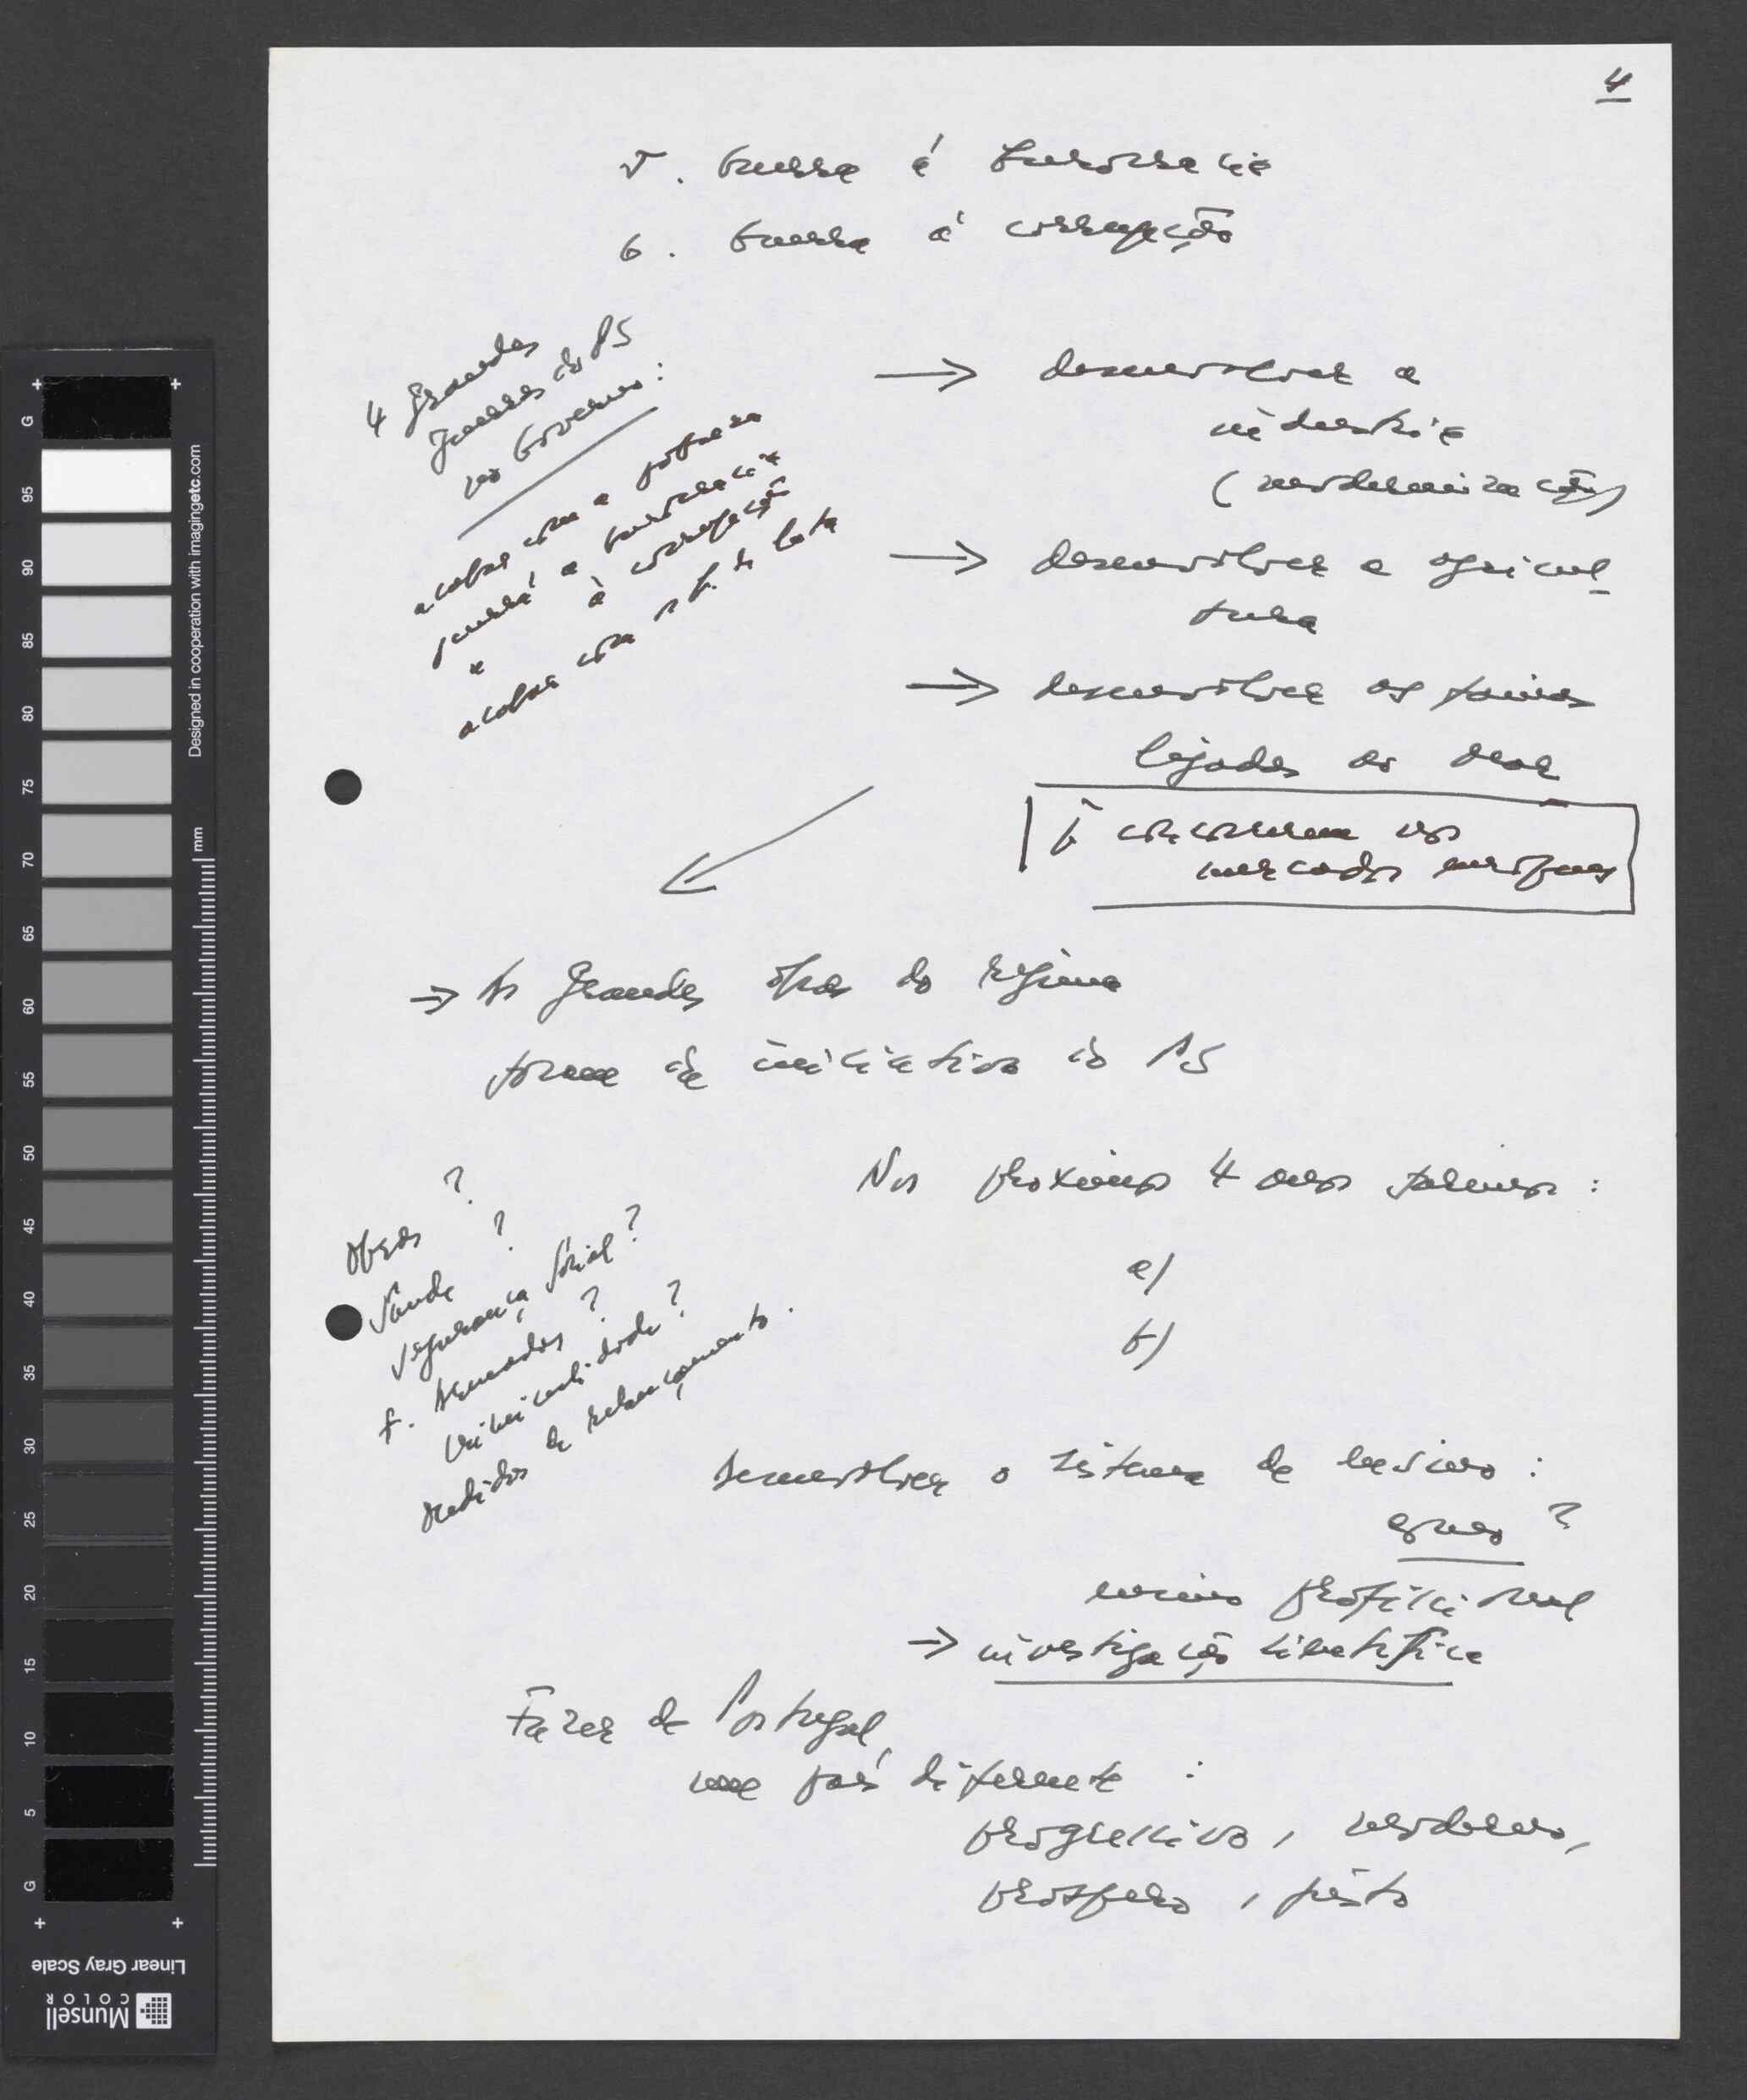 4
5. Guerra à burocracia
6. Guerra à corrupção
4 grandes
guerras do PS
no Governo:
acabar com a pobreza
guerra à burocracia
" à corrupção
acabar com de lata
→ desenvolver a
indústria
(modernização)
→ desenvolver a agricul_
tura
→ desenvolver as
ligadas ao mar
concorrerem nos
mercados europeus
→ As grandes obras do regime
foram da iniciativa do PS
Nos próximos 4 anos faremos:
a)
b)
Obras ?
Saúde ?
Segurança Social ?
F. Armadas ?
Criminalidade ?
Medidas de relançamento.
Desenvolver o sistema de ensino:
como ?
ensino profissional
→ investigação científica
Fazer de Portugal,
um país diferente :
progressivo, moderno,
próspero, justo
G
95
90
85
80
75
70
65
60
55
50
45
40
35
30
25
20
15
10
5
G
Designed in cooperation with imagingetc.com
mm
Linear Gray Scale
Munsell
COLOR